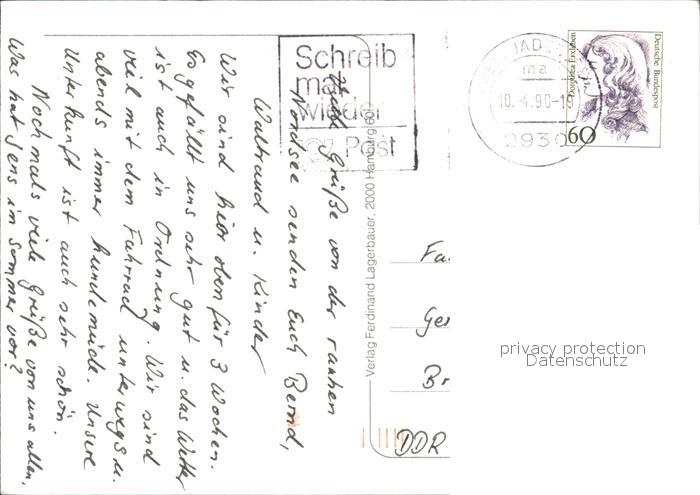 Schreib
mal
wieder
Post
JAD
ma
10.-4.90-19
2930
Dorothea Erxleben
Deutsche Bundespost
60
Viele Grüße von der rauhen
Nordsee senden Euch Bernd,
Waltraud u. Kinder
Wir sind hier oben für 3 Wochen.
Es gefällt uns sehr gut u. das Wetter
ist auch in Ordnung. Wir sind
viel mit dem Fahrrad unterwegs u.
abends immer hundemüde. Unsere
Unterkunft ist auch sehr schön.
Nochmals viele Grüße von uns allen.
Was hat Jens im Sommer vor?
Verlag Ferdinand Lagerbauer, 2000 Hamburg 60
Fa.
Ger
Br
DDR
privacy protection
Datenschutz